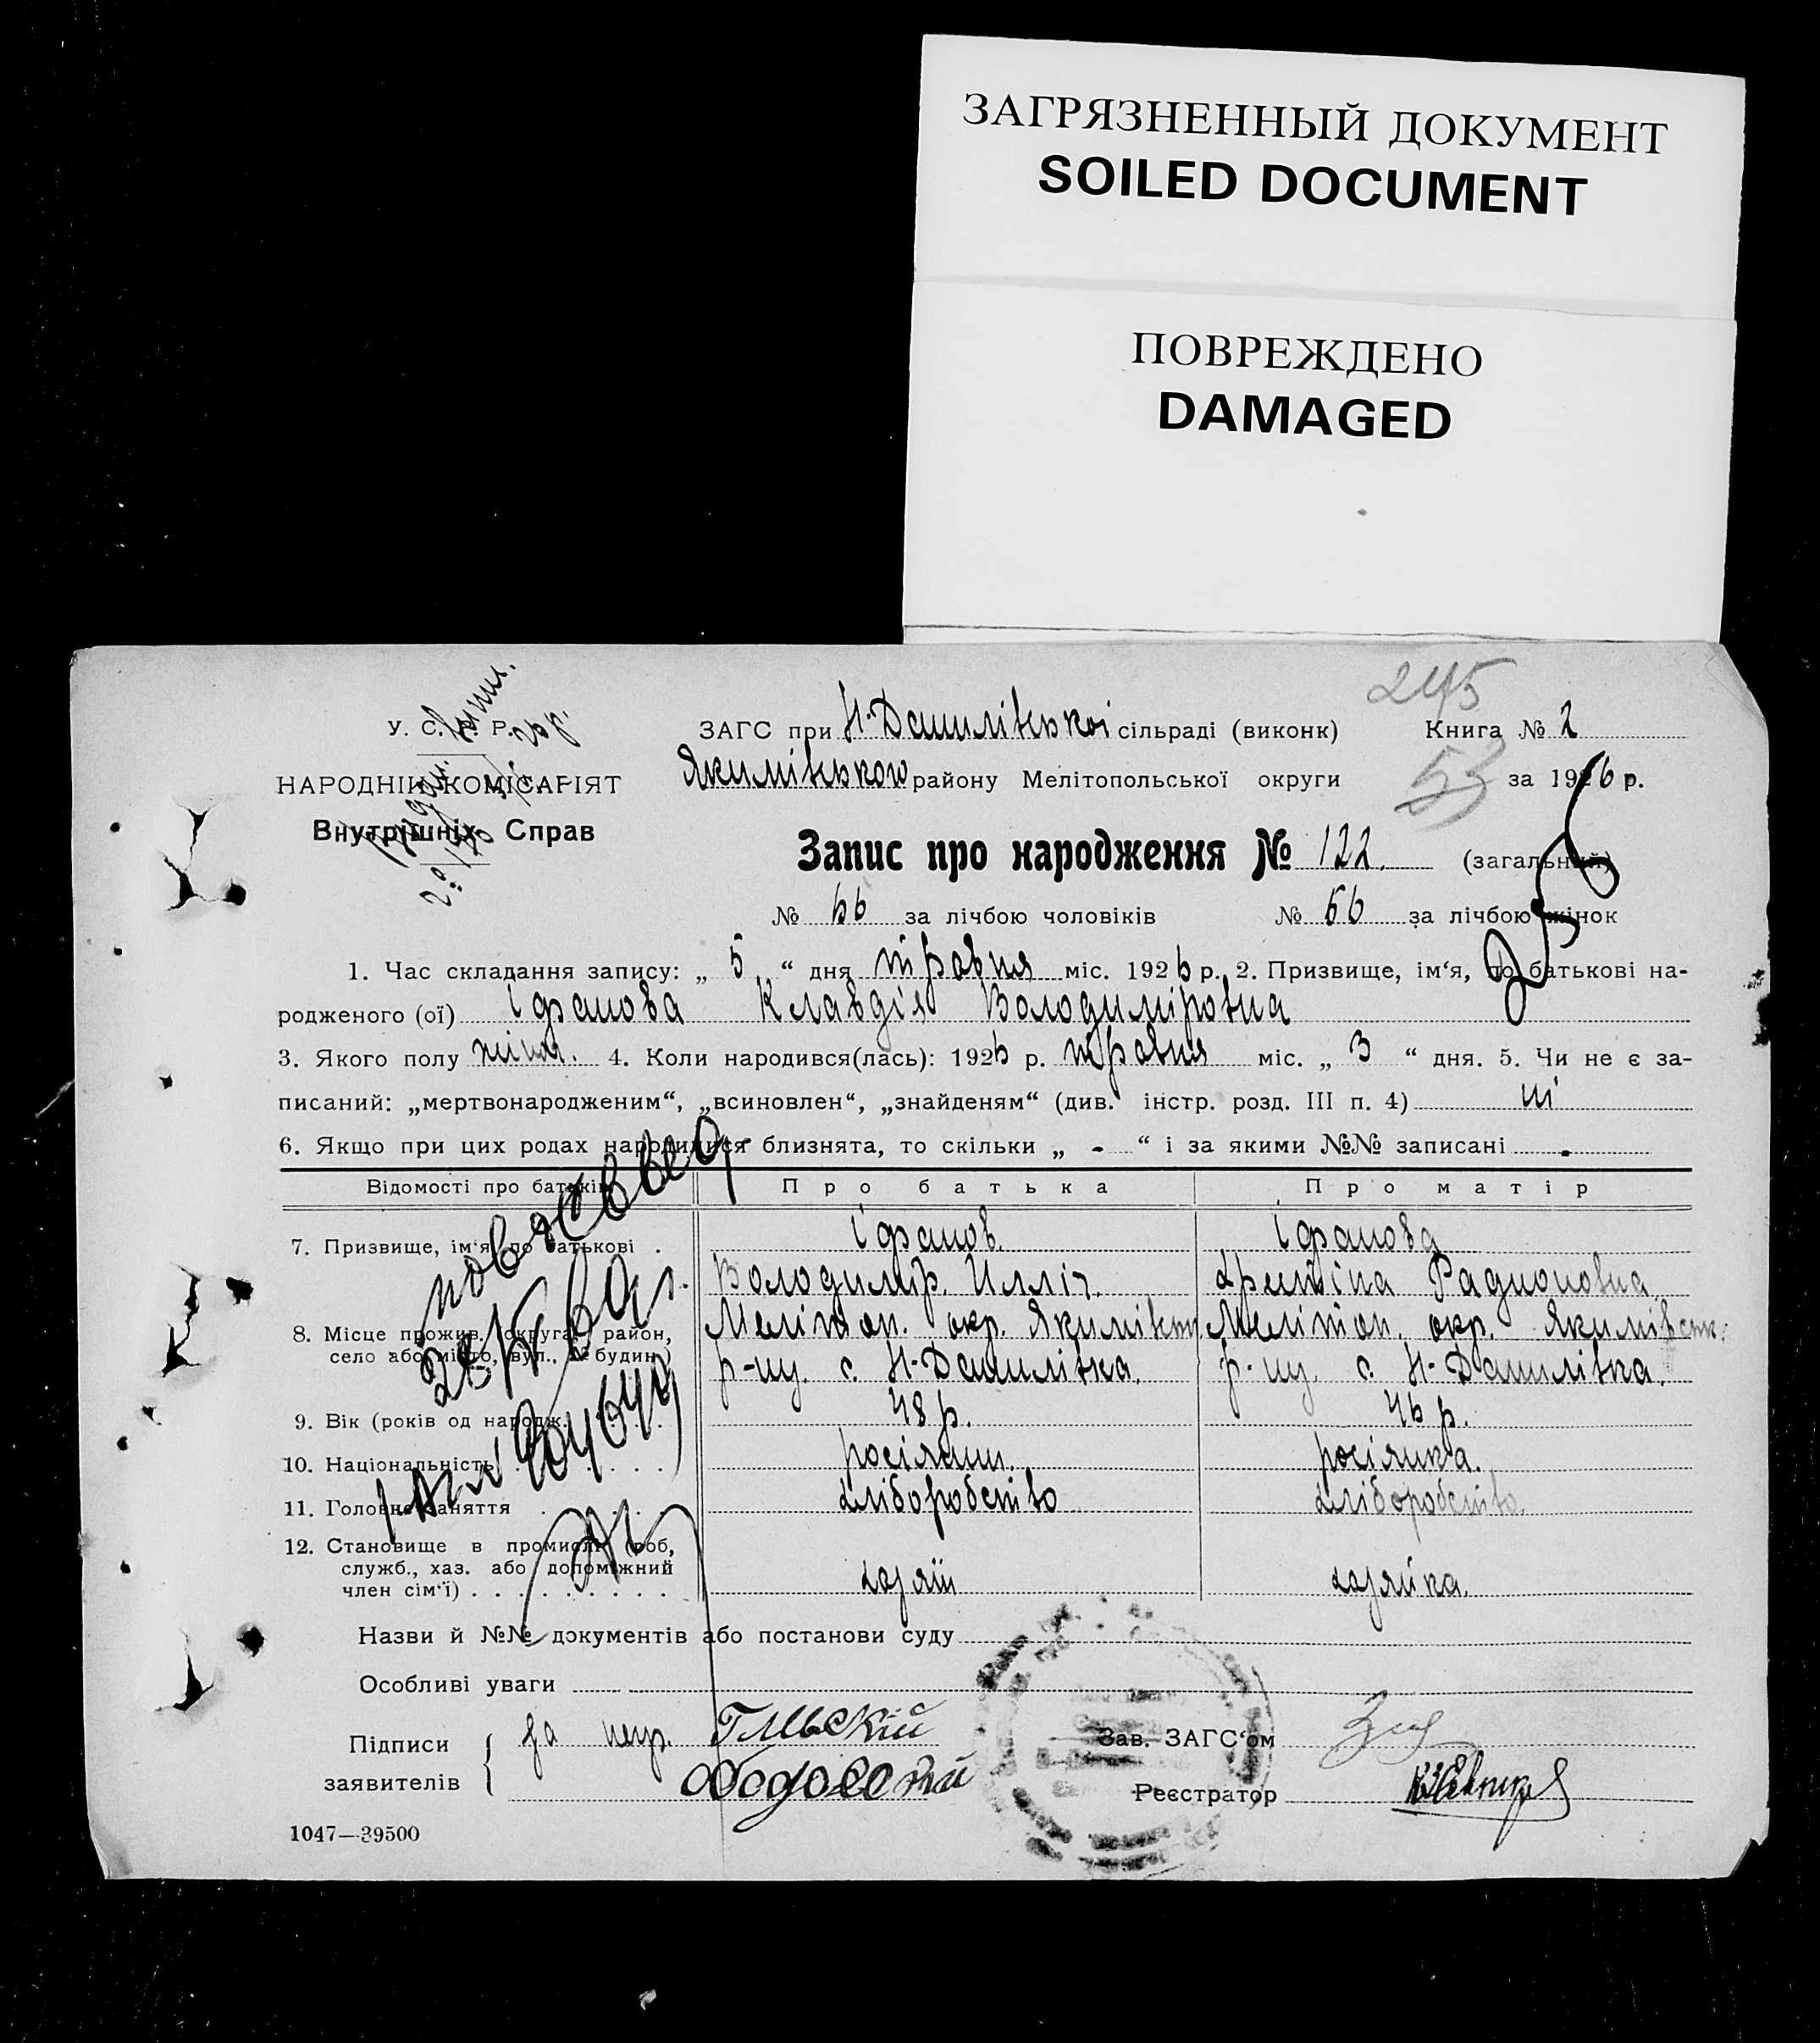 ЗАГРЯЗНЕННЫЙ ДОКУМЕНТ
SOILED DOCUMENT
ПОВРЕЖДЕНО
DAMAGED
245
У. С. Р. Р.
НАРОДНІЙ КОМІСАРІЯТ
Внутрішніх Справ
ЗАГС при Н-Данилівської сільраді (виконк) Книга № 2
Якимівського району Мелітопольської округи 53 за 1926 р.
Запис про народження № 122. (загальний)
№ 66 за лічбою чоловіків № 56 за лічбою жінок
1. Час складання запису: „ 5 “ дня травня міс. 1926 р. 2. Призвище, ім‘я, по батькові на-
родженого (ої) Клавдія Володиміровна
3. Якого полу жіноч. 4. Коли народився(лась): 1926 р. травня міс. „ 3 “ дня. 5. Чи не є за-
писаний: „мертвонародженим“, „всиновлен“, „знайденям“ (див. інстр. розд. III п. 4) ні
6. Якщо при цих родах народилися близнята, то скільки „ - “ і за якими №№ записані -
Відомості про батьків Про батька Про матір
7. Призвище, ім‘я, по батькові .
Володимір. Илліч. Радионовна
8. Місце прожив. (округа, район, Меліто́п. окр. Якимівськ Мелітоп. окр. Якимівськ.
село або місто, вул., № будин.) р-ну. с. Н-Данилівка. р-ну. с. Н-Данилівка.
9. Вік (років од народж. 48 р. 46 р.
10. Національність росіянин. росіянка.
11. Головне заняття хліборобство хліборобство.
12. Становище в промислі (роб,
служб., хаз. або допоміжний
член сім‘ї) хазяїн хазяйка.
Назви й №№ документів або постанови суду
Особливі уваги
Підписи за непр.
заявителів
Зав. ЗАГС‘ом
Реєстратор
1047—39500